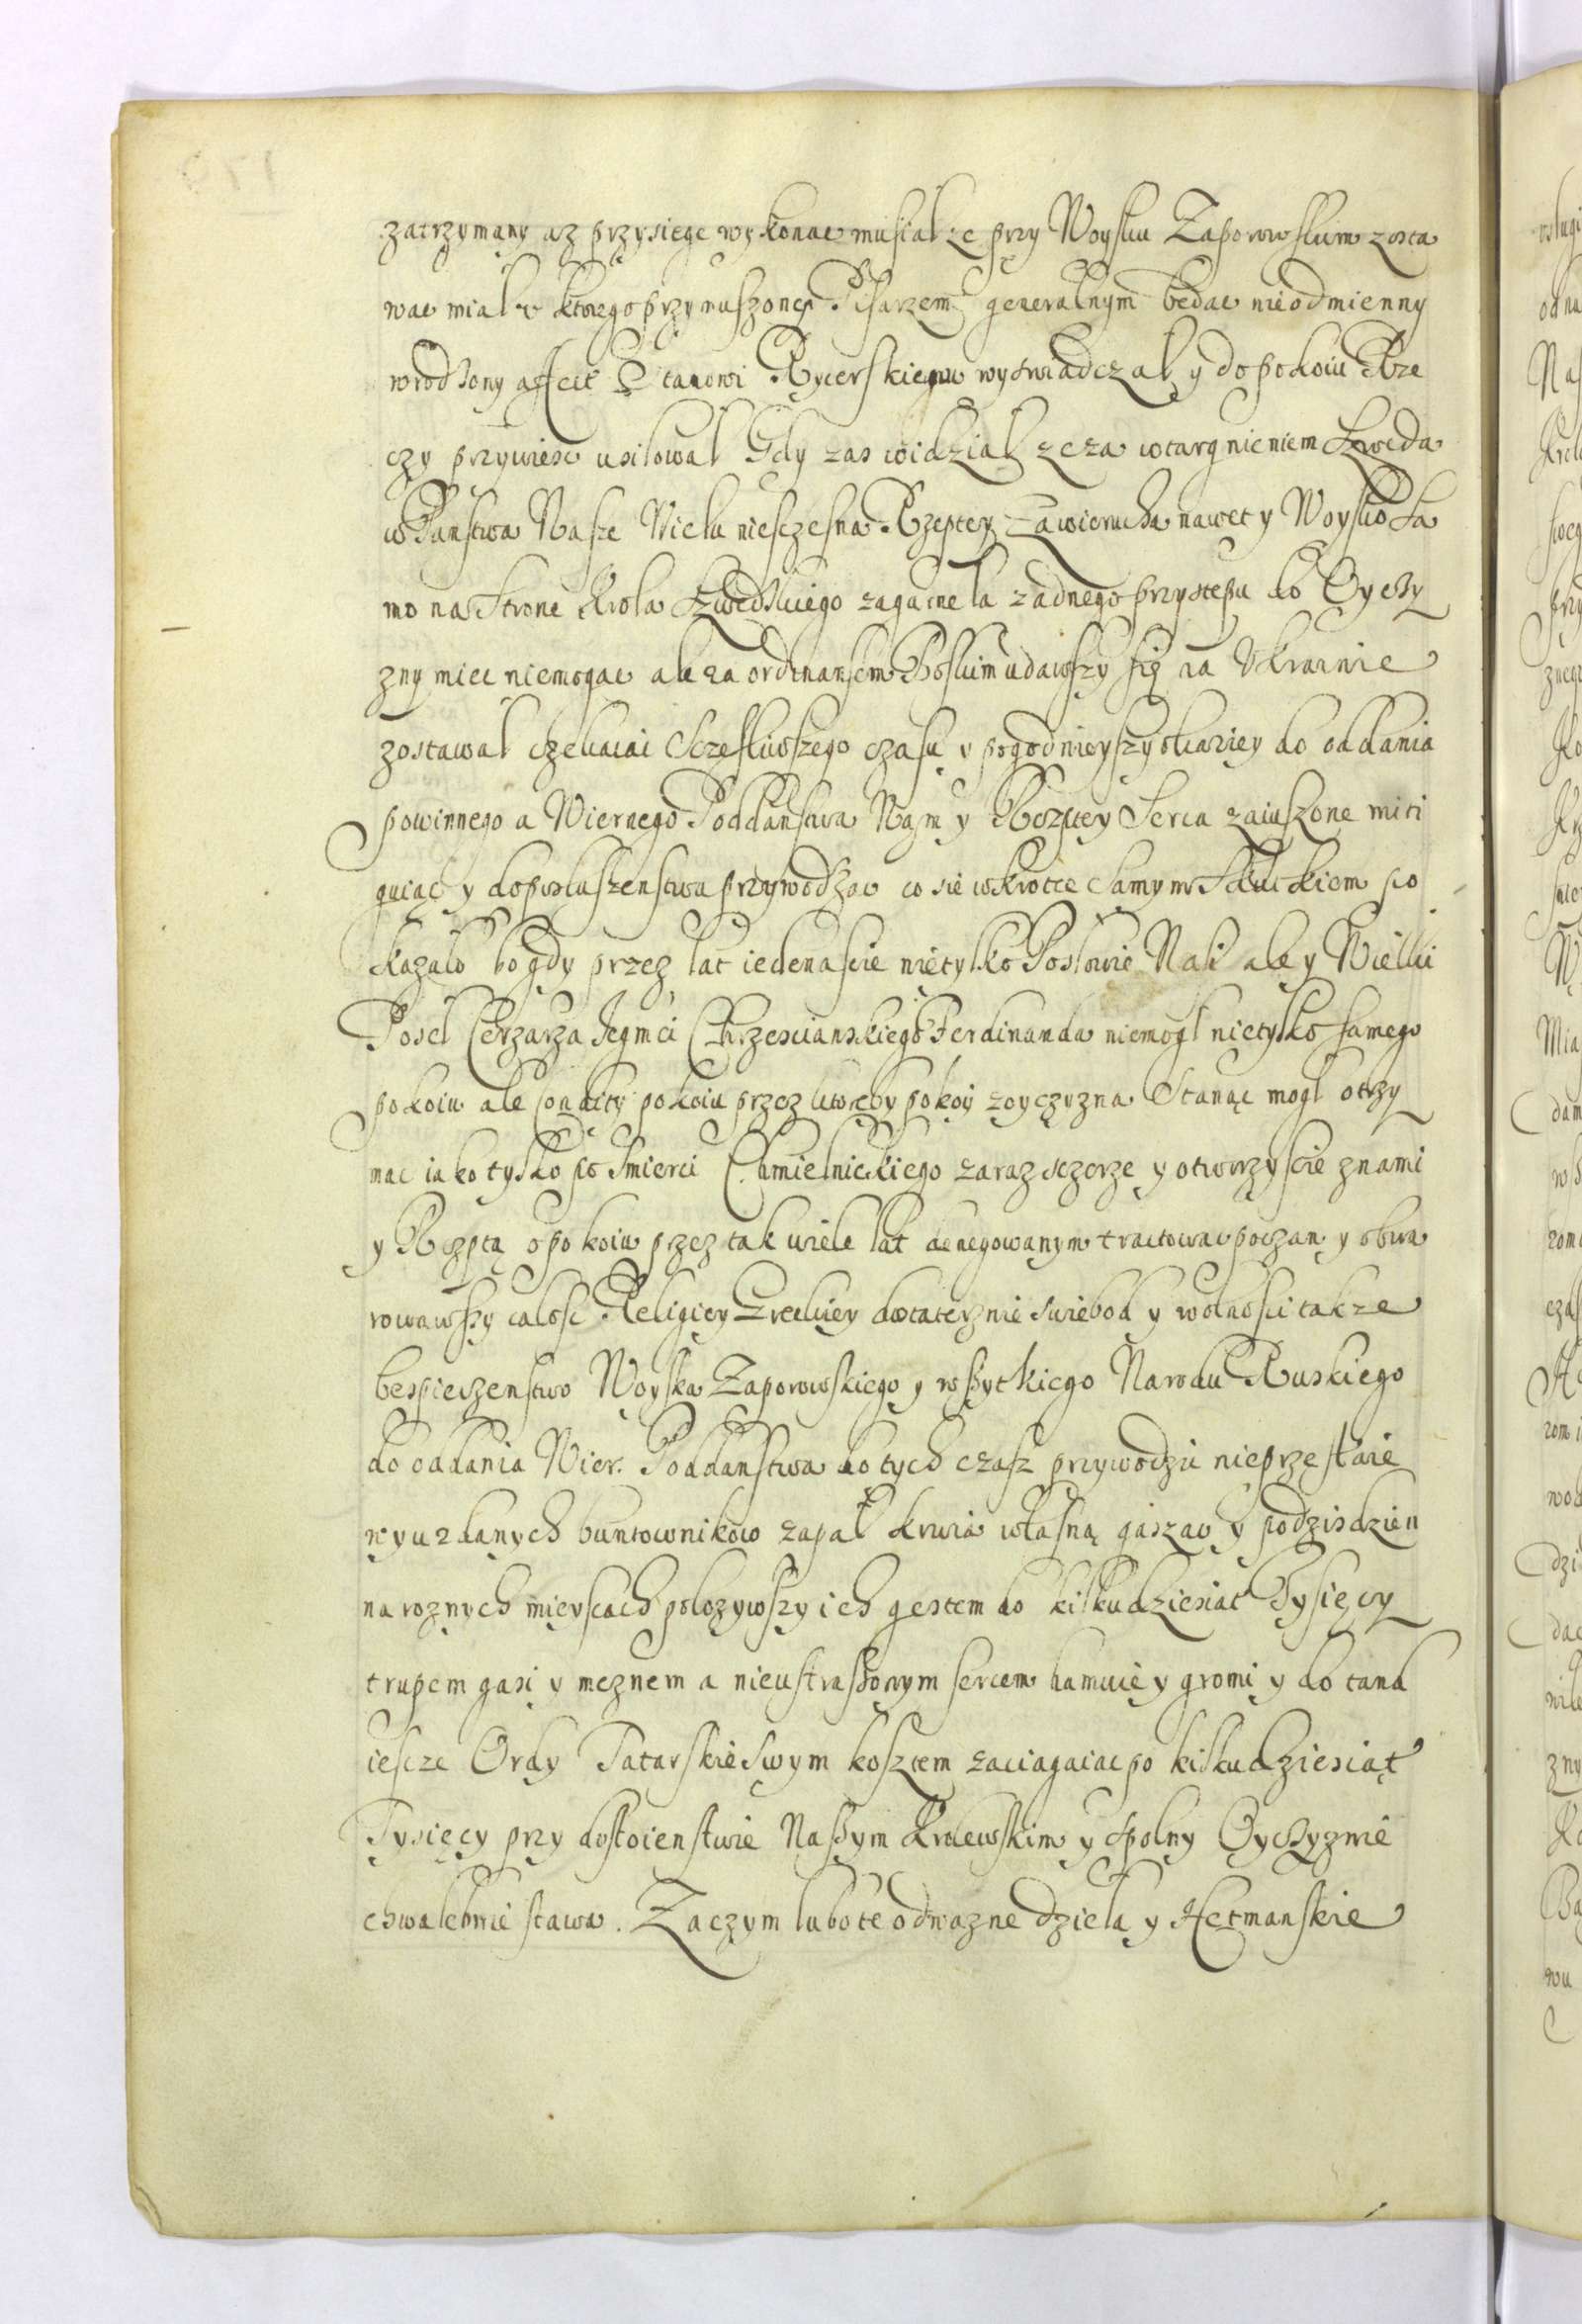 zatrzymany az przysiege wykonac musial ze przy Woysku Zaporowskim zosta
wac mial v ktorego przymuszoney Pisarzem generalnym bedac nieodmienny
wrodzony affect Stanowi Rycerskiemu wyswiadczal y do pokoiu Rze
czy przywiesc usilowal Gdy zas widzial ze za wtargnieniem Szweda
w Panstwa Nasze Wielu niesczesna Rzeptey Zawierucha nawet y Woysko Sa
mo na Strone Krola Szwedzkiego zagarnela zadnego przystepu do Oyczy
zny miec niemogac ale za ordinansem Boskim udawszy sie na Ukrainie
zostawal czekaiac Sczesliwszego czasu y pogodnieyszy okaziey do oddania
powinnego a Wiernego Poddanstwa Nam y Rzeptey Serca zaiuszone miti
guiac y do posluszenstwa przywodzac co sie wkrotce Samym Skutkiem po
kazalo bo gdy przez lat iedenascie nietylko Poslowie Nasi ale y Wielki
Posel Cerzarza Jegmci Chrzescianskiego Ferdinanda niemogl nietylko samego
pokoiu ale Conditiy pokoiu przez ktoreby pokoy z oyczyzna Stanąc mogl otrzy
mac iako tylko po smierci Chmielnickiego zaraz sczerze y otworzyscie z nami
y Rzptą o pokoiu przez tak wiele lat denegowanym tractowac poczan y obwa
rowawszy calosc Religiey Greckiey dostatecznie swiebod y wolnosci takze
bespieczenstwo Woyska Zaporowskiego y wszytkiego Narodu Ruskiego
do oddania Wier. Poddanstwa do tych czasz przywodzic nieprzestaie
wyuzdanych buntownikow zapal krwia własną gaszac y podzisdzien
na roznych mieyscach polozywszy ich gestem do kilkudziesiat Tysięcy
trupem gasi y meznem a nieustraszonym sercem hamuie y gromi y do tand
iescze Ordy Tatarskie Swym kosztem zaciagaiac po kilkudziesiąt
Tysięcy przy dostoienstwie Naszym Krolewskim y spolny Oyczyznie
chwalebnie stawa. Zaczym lubo te odwazne dziela y Hetmanskie